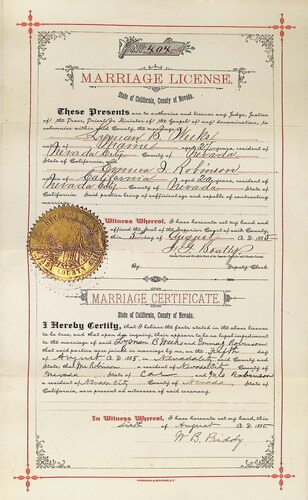 No. 404
MARRIAGE LICENSE.
State of California, County of Nevada.
These Presents are to authorize and license any Judge, Justice
of the Peace, Priest or Minister of the Gospel of any denomination, to
solemnize within said County, the marriage of
Lyman B. Weeks
native of Maine, aged years, resident of
Nevada City, County of Nevada
State of California, with
Emma J. Robinson
native of California, aged years, resident of
Nevada City, County of Nevada, State of
California. Said parties being of sufficient age and capable of contracting
marriage.
In Witness Whereof, I have hereunto set my hand and
affixed the Seal of the Superior Court of said County,
this 5 day of August A. D. 1885
County Clerk and Ex-officio Clerk of the Superior Court of said County.
By Deputy Clerk.
MARRIAGE CERTIFICATE.
State of California, County of Nevada.
I Hereby Certify, that I believe the facts stated in the above license
to be true, and that upon due inquiry, there appears to be no legal impediment
to the marriage of said Lyman B Weeks and Emma J Robinson
that said parties were joined in marriage by me, on the Fifth day
of August A. D. 1885, in Nevada City, said County and
State; that Mr Robinson a resident of Nevada City County of
Nevada State of Cal and Mrs Robinson
a resident of Nevada City County of Nevada, State of
California, were present as witnesses of said ceremony.
In Witness Whereof, I have hereunto set my hand, this
sixth day of August A. D. 1885